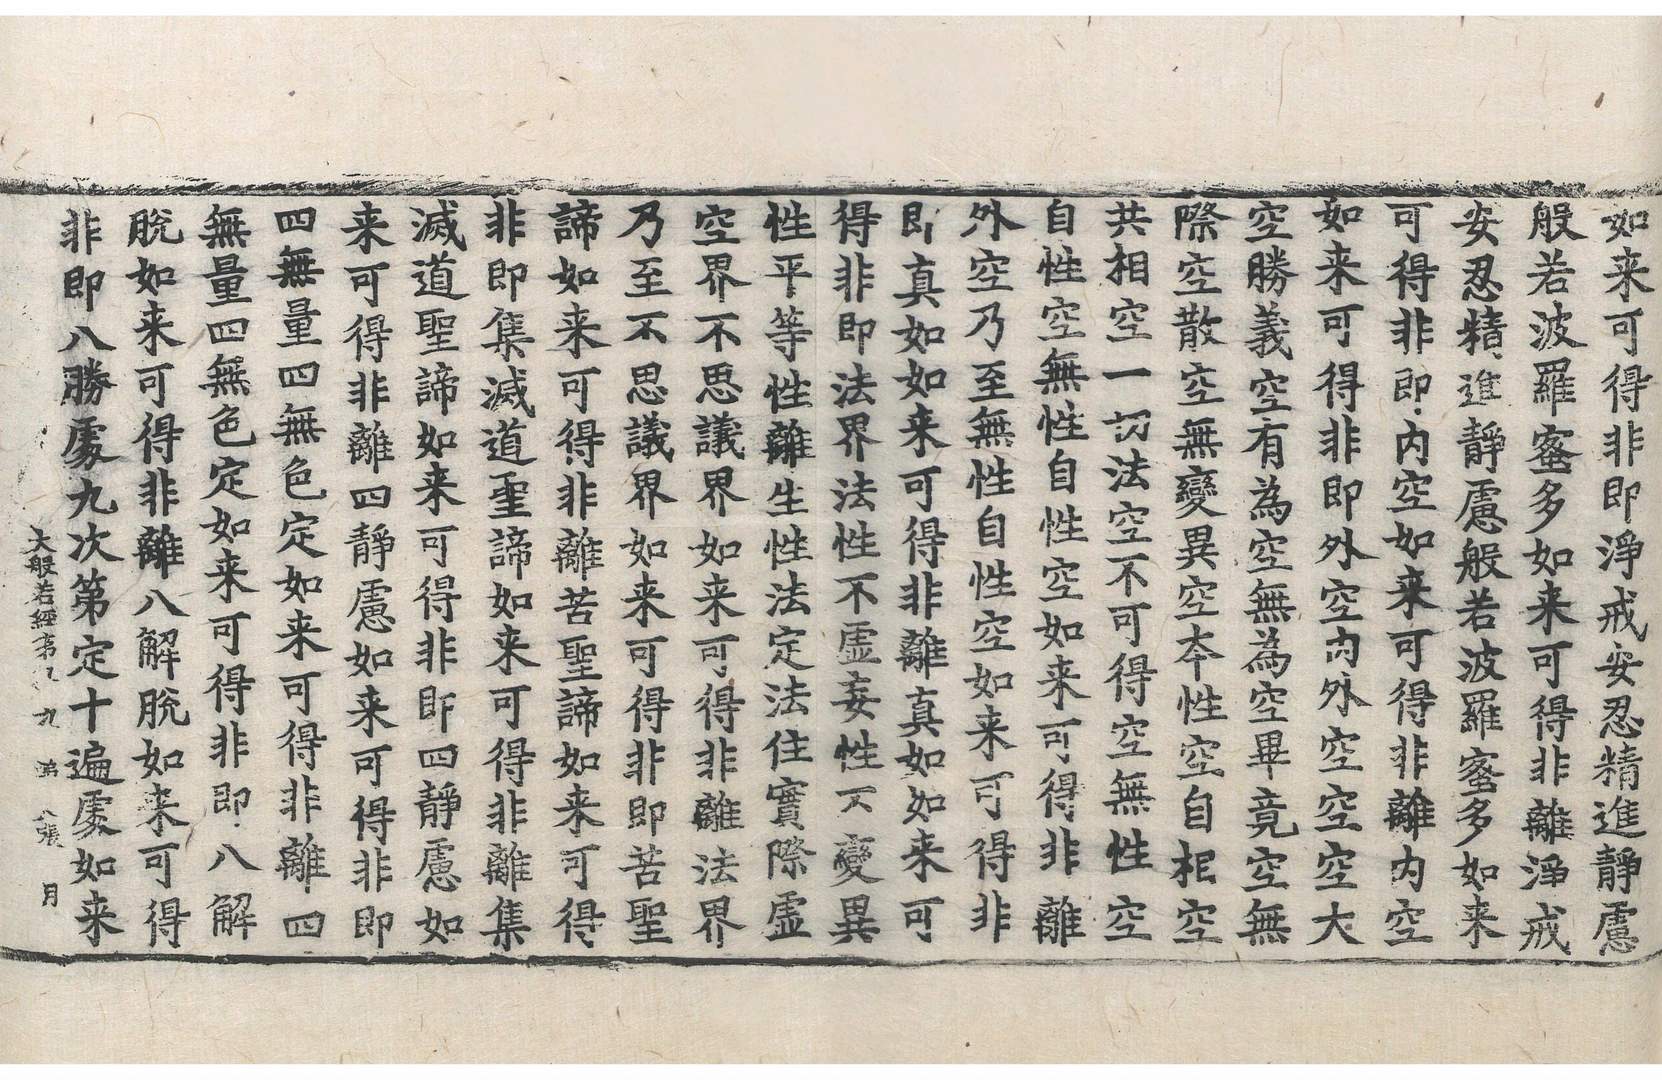 如来可得非即淨戒安忍精進靜慮
般若波羅蜜多如来可得非離淨戒
安忍精進靜慮般若波羅蜜多如来
可得非即內空如来可得非離內空
如来可得非即外空內外空空空大
空勝義空有為空無為空畢竟空無
際空散空無變異空夲性空自相空
共相空一切法空不可得空無性空
自性空無性自性空如来可得非離
外空乃至無性自性空如来可得非
即真如如来可得非離真如如来可
得非即法界法性不虛妄性不變異
性平等性離生性法定法住實際虛
空界不思議界如来可得非離法界
乃至不思議界如来可得非即苦聖
諦如来可得非離苦聖諦如来可得
非即集滅道聖諦如来可得非離集
滅道聖諦如来可得非即四靜慮如
来可得非離四靜慮如来可得非即
四無量四無色定如来可得非離四
無量四無色定如来可得非即八解
脫如来可得非離八解脫如来可得
非即八勝處九次第定十遍處如来
大般若經第 九 第八張 月